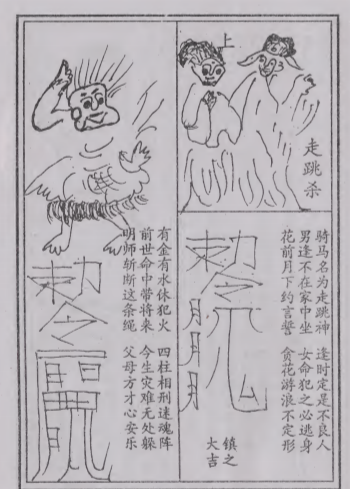 上
走跳杀
骑马名为走跳神 逢时定是不良人
男逢不在家中坐 女命犯之必逃身
花前月下约言誓 贪花游浪不定形
勅令
月月月
镇之
大吉
有金有水休犯火 四柱相刑迷魂阵
前世命中带将来 今生灾难无处躲
明师斩断这条绳 父母方才心安乐
勅令